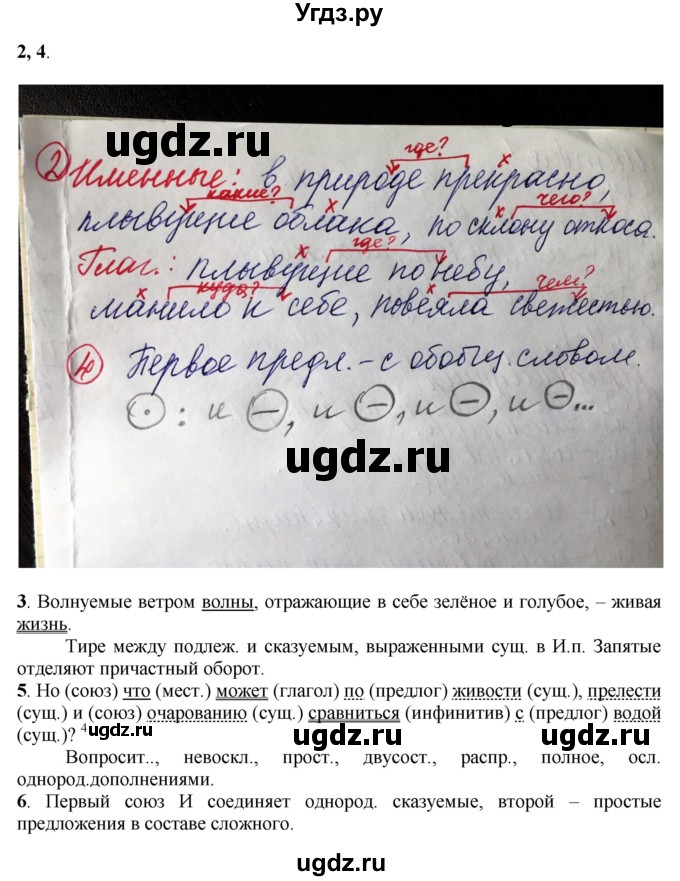 Угдз.ру
2, 4.
ugdz.ru
где? х
② Именные: в природе прекрасно,
какие? х чего?
плывущие облака, по склону откоса.
х где?
Глаг.: плывущие по небу,
х куда? х чем?
манило к себе, повеяла свежестью.
④ Первое предл. – с обобщ. словом.
ugdz.ru
⊙: и ⊖, и ⊖, и ⊖, и ⊖...
ugdz.ru
3. Волнуемые ветром волны, отражающие в себе зелёное и голубое, – живая
жизнь.
Тире между подлеж. и сказуемым, выраженными сущ. в И.п. Запятые
отделяют причастный оборот.
ugdz.ru
5. Но (союз) что (мест.) может (глагол) по (предлог) живости (сущ.), прелести
(сущ.) и (союз) очарованию (сущ.) сравниться (инфинитив) с (предлог) водой
(сущ.)? 4
ugdz.ru ugdz.ru ugdz.ru
Вопросит.., невоскл., прост., двусост., распр., полное, осл.
однород.дополнениями.
6. Первый союз И соединяет однород. сказуемые, второй – простые
предложения в составе сложного.
ugdz.ru